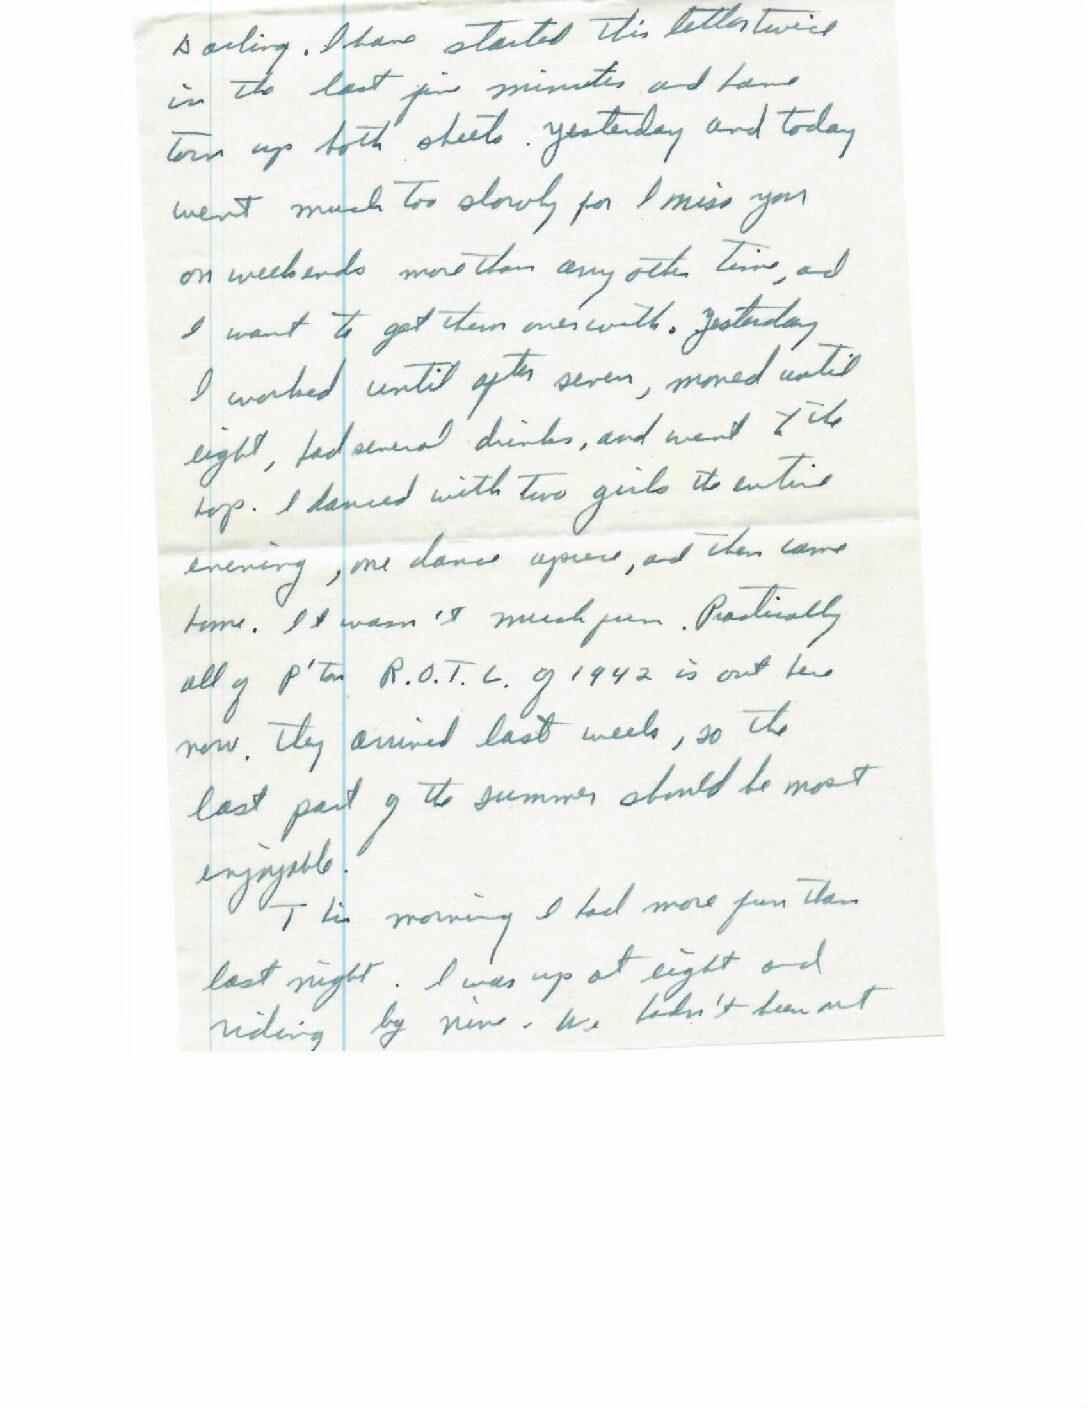 Darling. I have started this letter twice
in the last five minutes and have
torn up both sheets. Yesterday and today
went much too slowly for I miss you
on weekends more than any other time, and
I want to get them over with. Yesterday
I worked until after seven, moved until
eight, had several drinks, and went to the
hop. I danced with two girls the entire
evening, one dance apiece, and then came
home. It wasn't much fun. Practically
all of P'ton R.O.T.C. of 1942 is out here
now. They arrived last week, so the
last part of the summer should be most
enjoyable.
This morning I had more fun than
last night. I was up at eight and
riding by nine. We hadn't been out